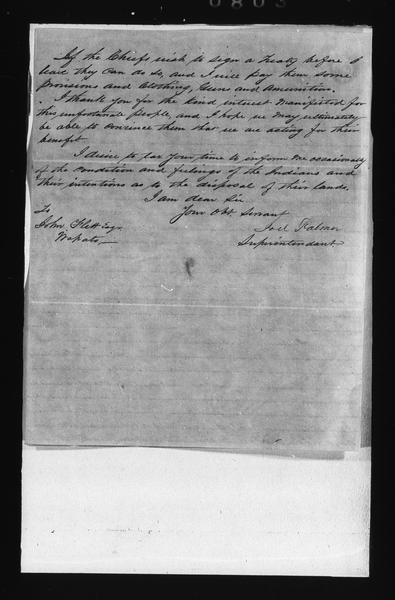 0803
If the Chiefs wish to sign a Treaty before I
leave they can do so, and I will pay them some
provisions and Clothing, Guns and Amunition.
I thank you for the kind interest manifested for
this unfortunate people, and I hope we may ultimately
be able to convince them that we are acting for their
benefit.
I desire to for your time to inform me occasionaly
of the condition and feelings of the Indians and
their intentions as to the disposal of their lands.
I am dear Sir
Your Obt Servant
To
Joel Palmer
John Flett Esqr
Superintendant
Wapato,